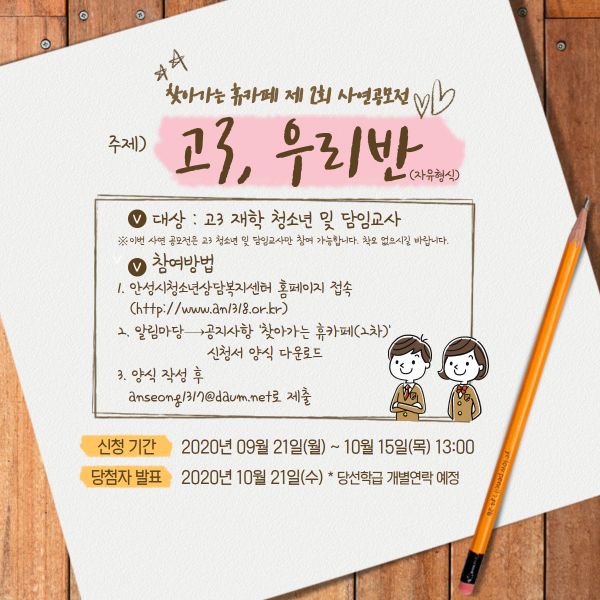 찾아가는 휴카페 제 2회 사연공모전
주제)
고3, 우리반
(자유형식)
V 대상 : 고3 재학 청소년 및 담임교사
※이번 사연 공모전은 고3 청소년 및 담임교사만 참여 가능합니다. 착오 없으시길 바랍니다.
V 참여방법
1. 안성시청소년상담복지센터 홈페이지 접속
(http://www.an1318.or.kr)
2. 알림마당→공지사항 '찾아가는 휴카페(2차)'
신청서 양식 다운로드
3. 양식 작성 후
anseong1317@daum.net로 제출
신청 기간 2020년 09월 21일(월) ~ 10월 15일(목) 13:00
당첨자 발표 2020년 10월 21일(수) * 당선학급 개별연락 예정